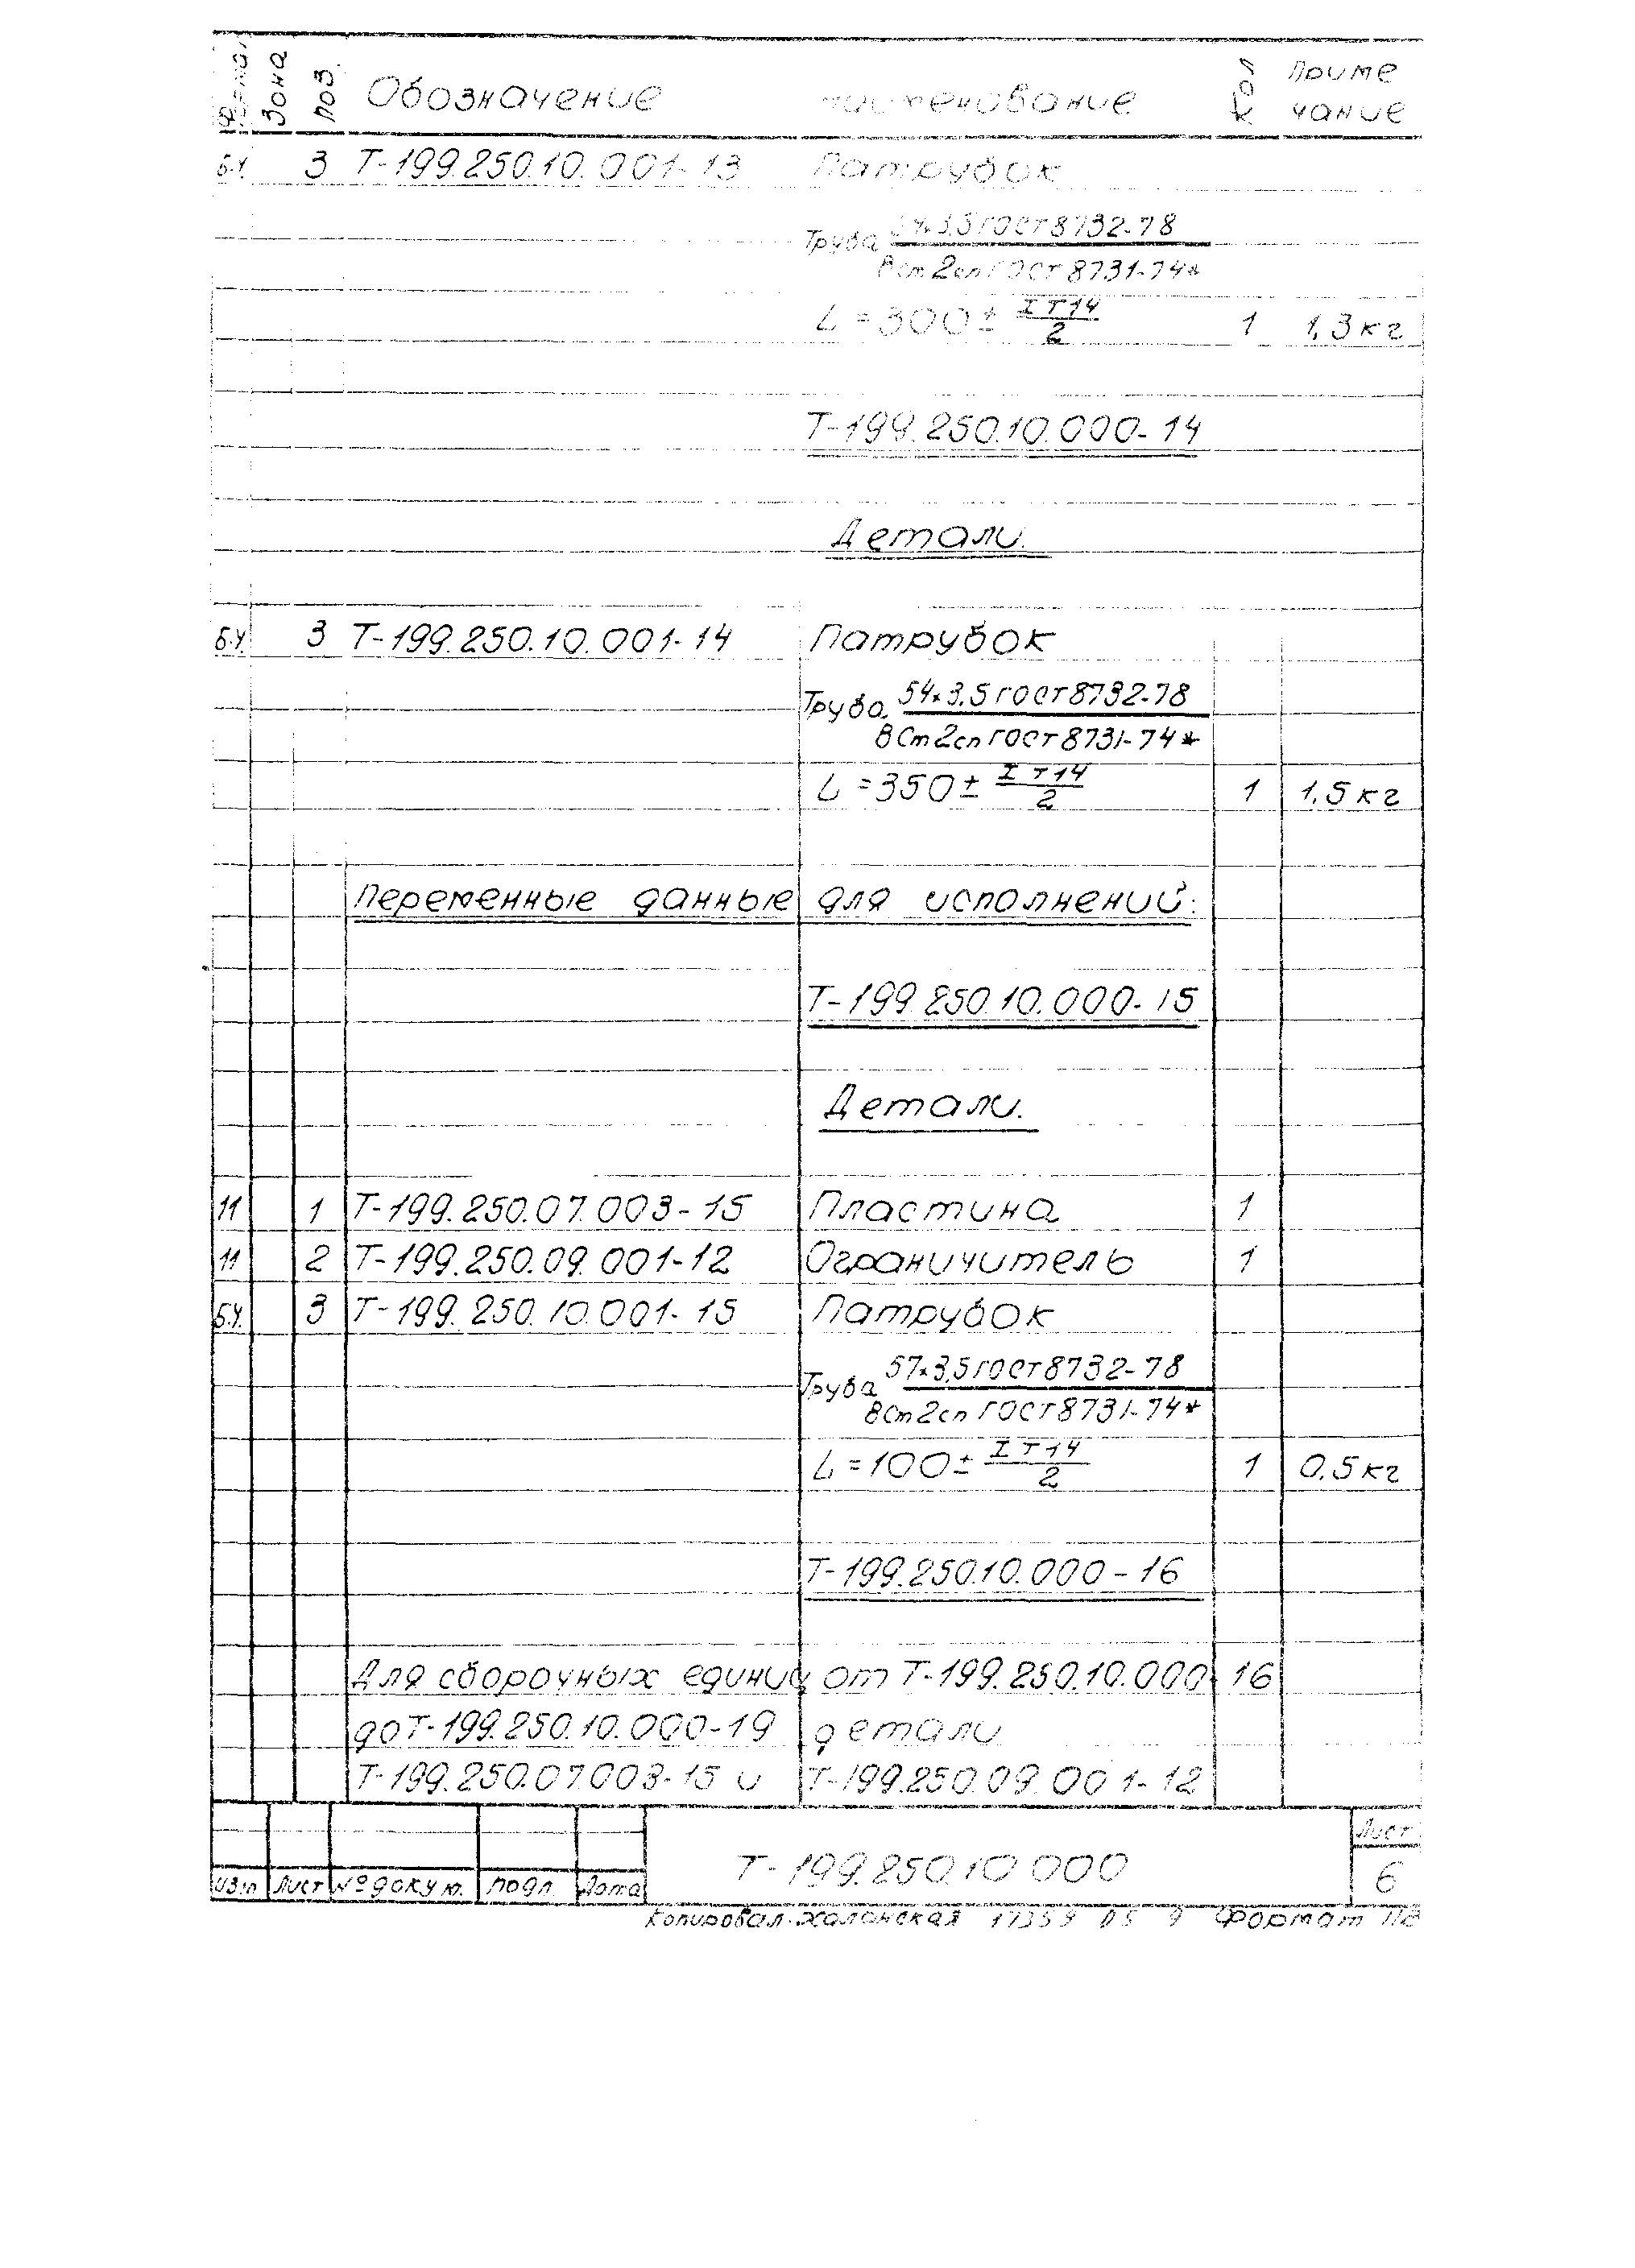 Формат Зона Поз. Обозначение Наименование Кол Приме
чание
Б.Ч. 3 Т-199.250.10.001-13 Патрубок
Труба 54×3,5 ГОСТ 8732-78
ВСт2сп ГОСТ 8731-74*
L=300± IT14
2 1 1,3 кг
Т-199.250.10.000-14
Детали.
Б.Ч. 3 Т-199.250.10.001-14 Патрубок
Труба 54×3,5 ГОСТ 8732-78
ВСт2сп ГОСТ 8731-74*
L=350± IT14
2 1 1,5 кг
Переменные данные для исполнений:
Т-199.250.10.000-15
Детали.
11 1 Т-199.250.07.003-15 Пластина 1
11 2 Т-199.250.09.001-12 Ограничитель 1
Б.Ч. 3 Т-199.250.10.001-15 Патрубок
Труба 57×3,5 ГОСТ 8732-78
ВСт2сп ГОСТ 8731-74*
L=100± IT14
2 1 0,5 кг
Т-199.250.10.000-16
Для сборочных единиц от Т-199.250.10.000-16
до Т-199.250.10.000-19 детали
Т-199.250.07.003-15 и Т-199.250.09.001-12
Изм Лист № докум. Подп. Дата Т-199.250.10.000 Лист
6
Копировал: Халанская 17359 Формат